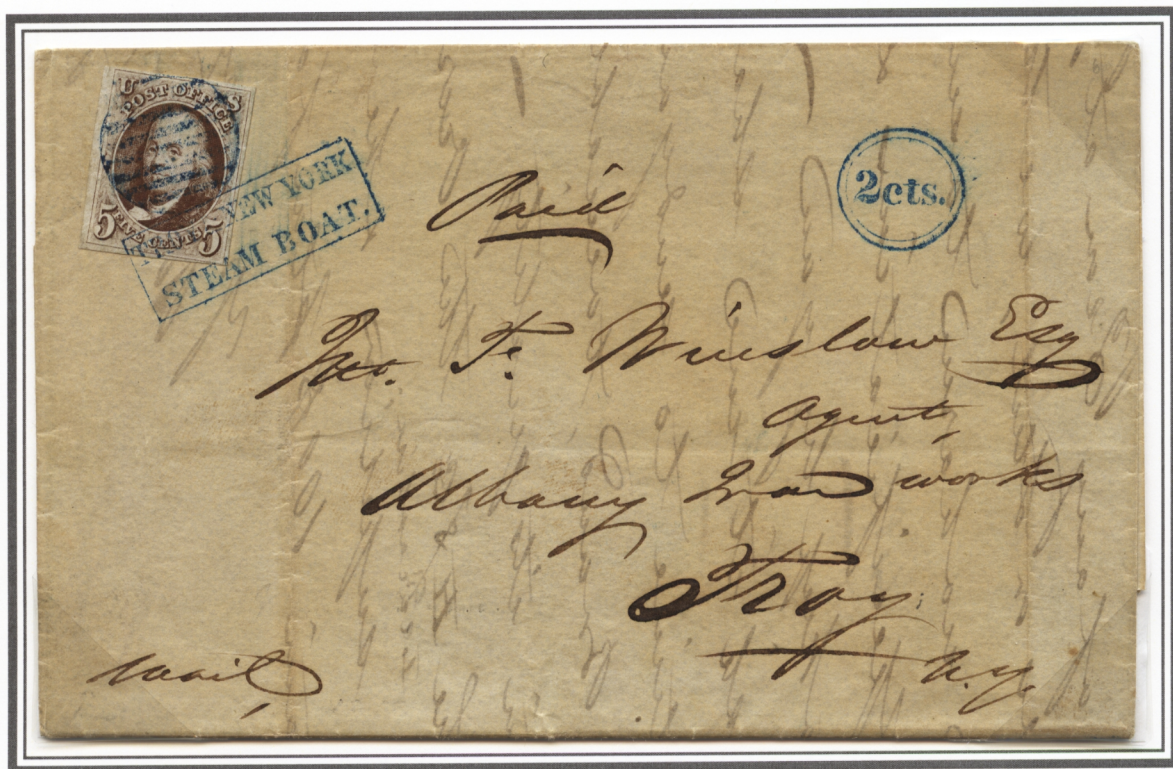 U S
POST OFFICE
5 FIVE CENTS 5
NEW YORK
STEAM BOAT.
2cts.
Paid
Jno. F. Winslow Esq
Agent,
Albany Iron works
Troy
N.Y.
mail,